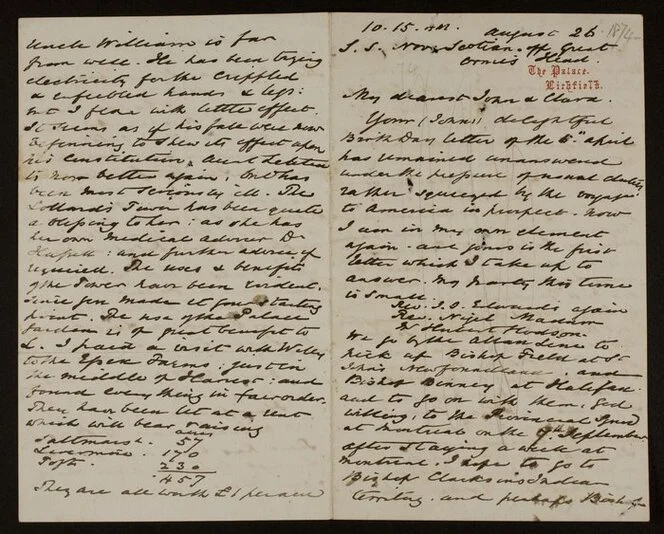 Uncle William is far
from well. He has been trying
electricity for the crippled
& enfeebled hands & legs:
but I fear with little effect.
It seems as if his fall were now
beginning to shew its effect upon
his constitution.
is now better again, but has
been most seriously ill. The
Lollard's Tower has been quite
a blessing to her: as she has
her own medical adviser Dr
and further advice if
required. The uses & benefits
of the Tower have been evident
since you made it your starting
point. The use of the Palace
Garden is of great benefit to
I paid a visit with Willy
to the Essex Farms: just in
the middle of Harvest: and
found everything in fair order.
They have been let at a rent
which will bear raising
acres
Saltmarsh. 57
Livermore. 170
Tofts. 230
457
They are all worth £1 per acre
10.15. AM. August 26 1874
S.S. Nova Scotian. off Great
Orme's Head.
The Palace.
Lichfield.
My dearest John & Clara.
Your (John's) delightful
Birth Day letter of the 5th April
has remained unanswered
under the pressure of usual duties
rather squeezed by the voyage
to America in prospect. Now
I am in my own element
again. and yours is the first
letter which I take up to
answer. My party this time
is small.
Rev. J. O. Edwards again
Rev. Nigel Madan
Hodson.
We go by the Allan Line to
pick up Bishop Field at St
John's Newfoundland. and
Bishop Binney at Halifax.
and to go on with them, God
willing, to the Provincial Synod
at Montreal on the 9th September
after staying a week at
Montreal. I hope to go to
Bishop Clarkson's Indian
Territory. and perhaps Bishop